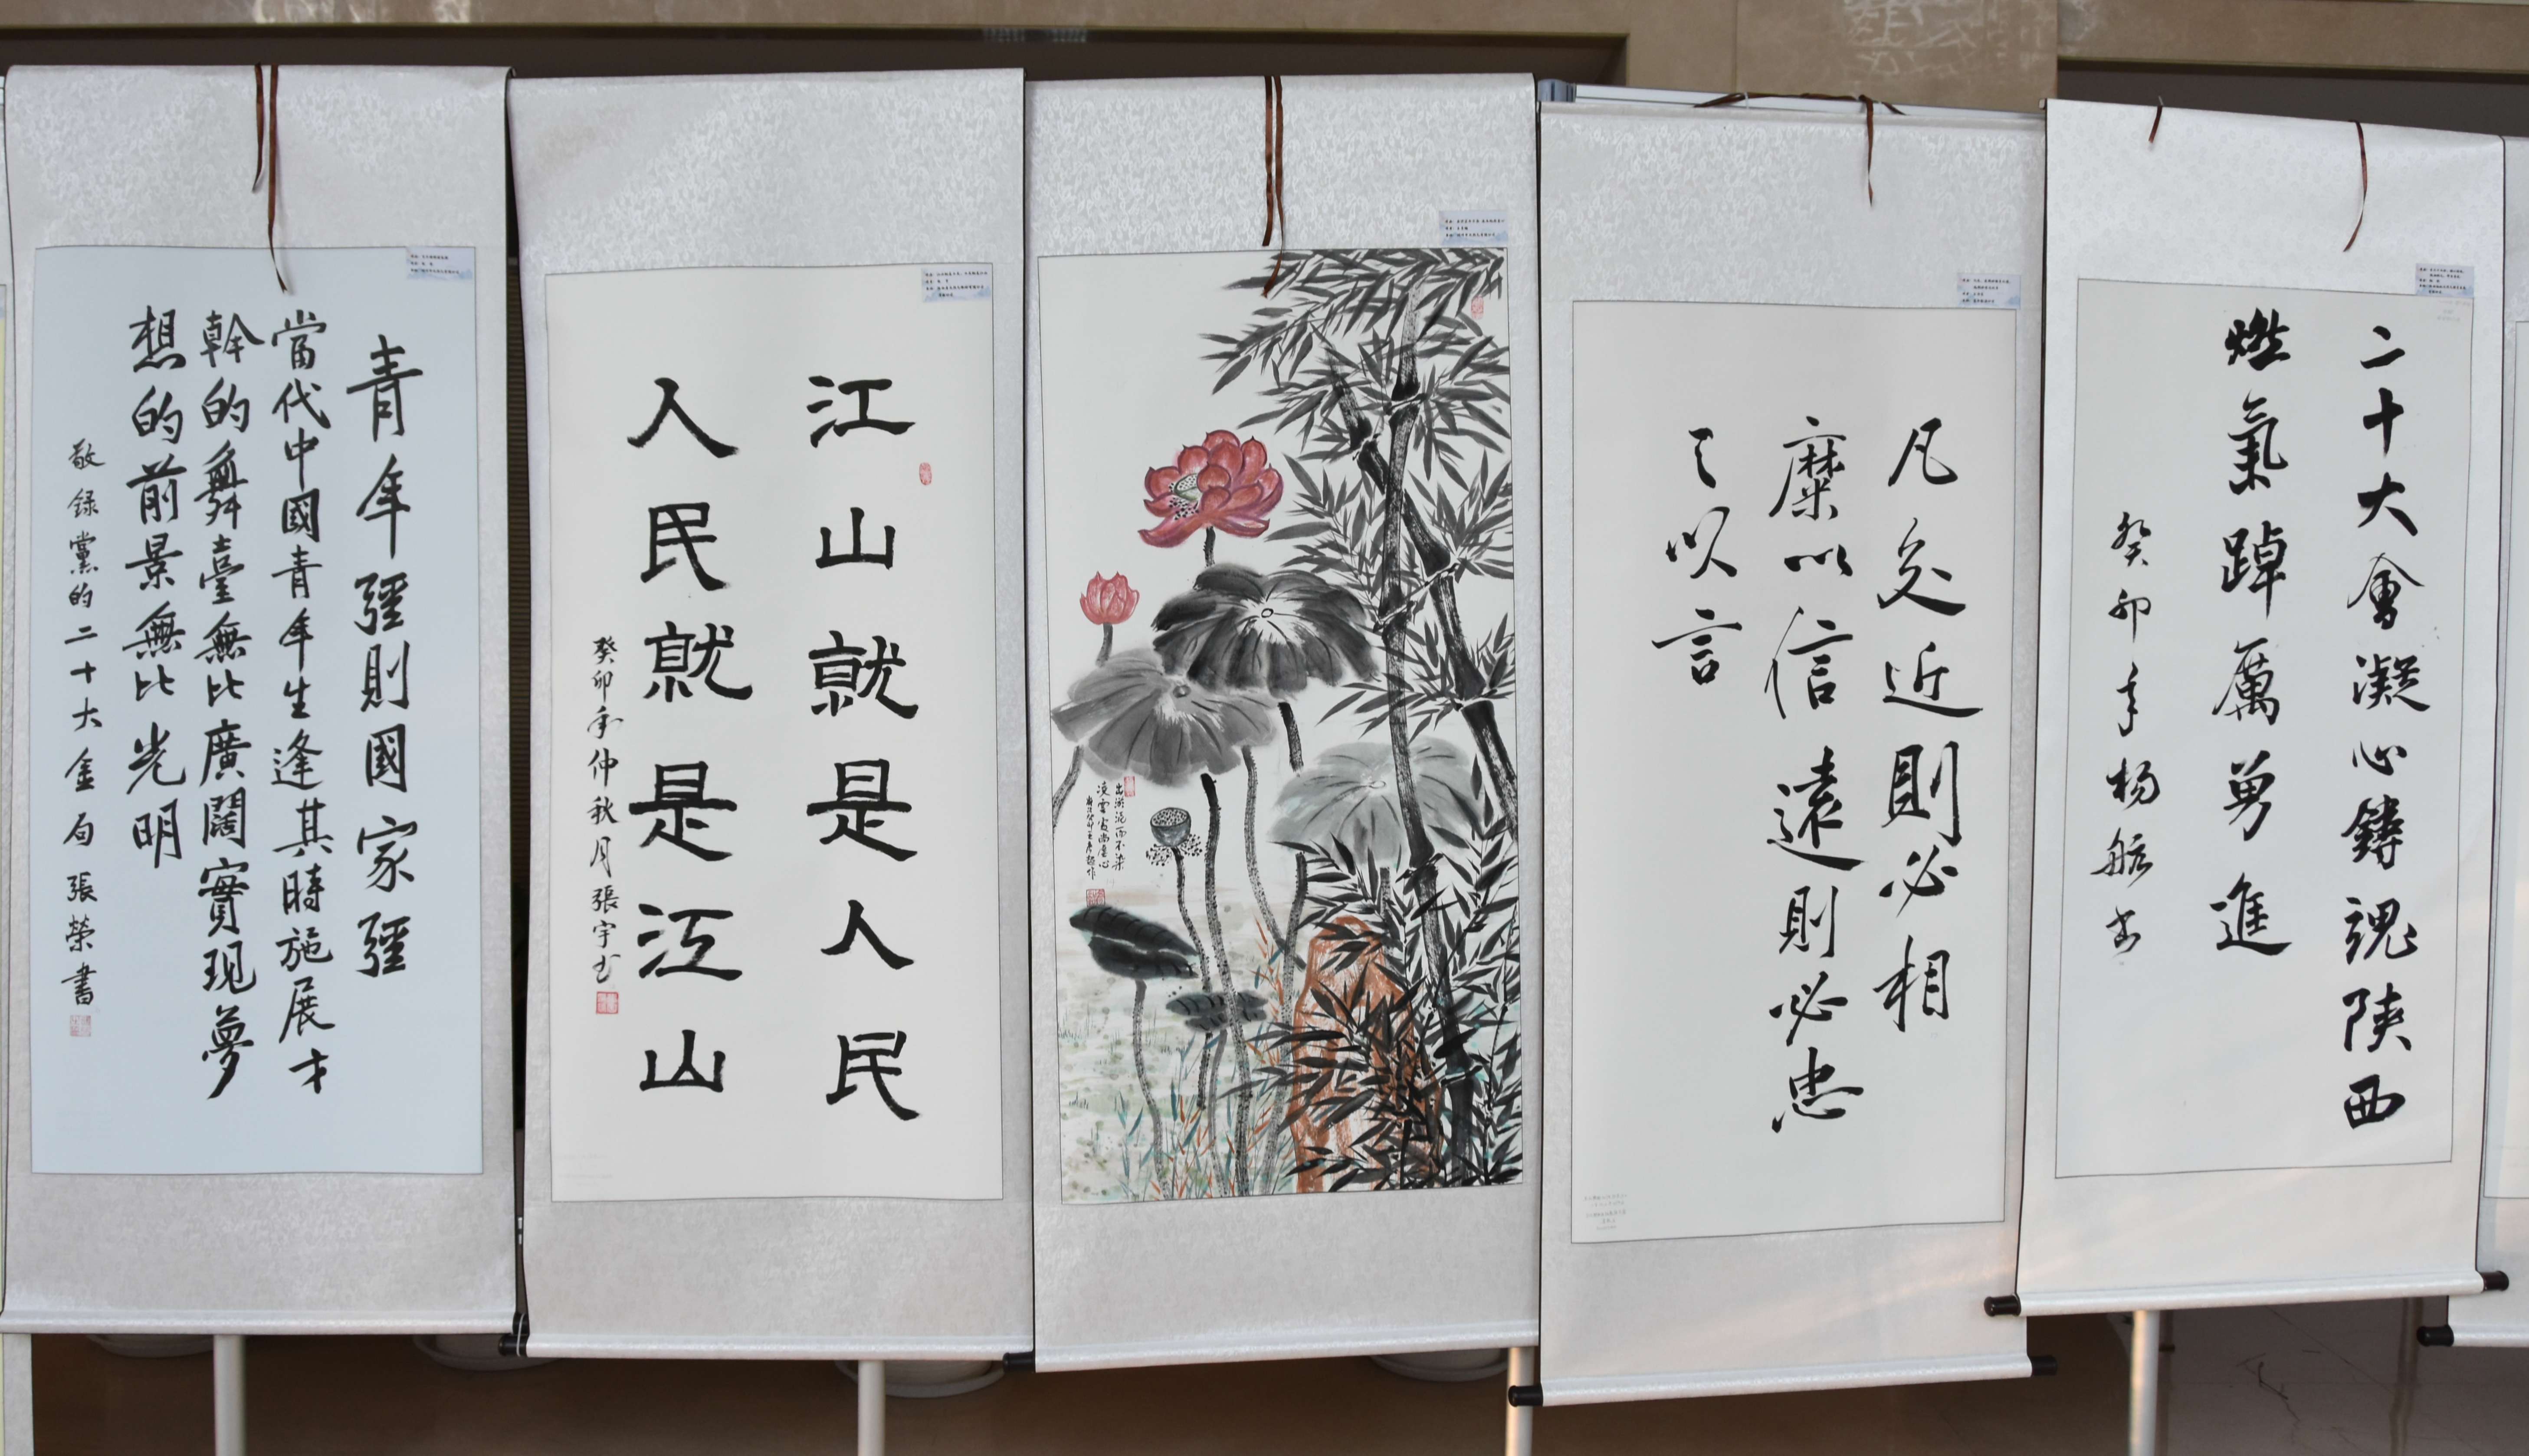 青年彊則國家彊
當代中國青年生逢其時施展才
幹的舞臺無比廣闊實現夢
想的前景無比光明
敬録黨的二十大金句張榮書
江山就是人民
人民就是江山
癸卯年仲秋月張宇书
出淤泥而不染
凌雲處尚虛心
凡交近則必相
糜以信遠則必忠
之以言
二十大會凝心鑄魂陝西
燃氣踔厲勇進
癸卯年杨书